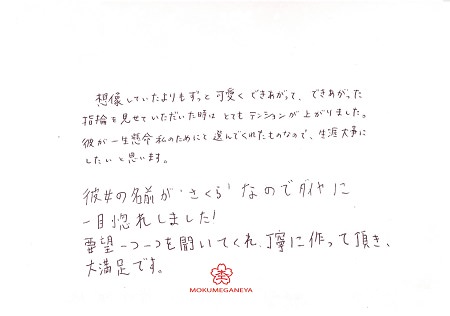 想像していたよりもずっと可愛くできあがって、できあがった
指輪を見せていただいた時はとてもテンションが上がりました。
彼が一生懸命私のためにと選んでくれたものなので、生涯大事に
したいと思います。
彼女の名前が“さくら”なのでダイヤに
一目惚れしました!
要望一つ一つを聞いてくれ、丁寧に作って頂き、
大満足です。
MOKUMEGANEYA